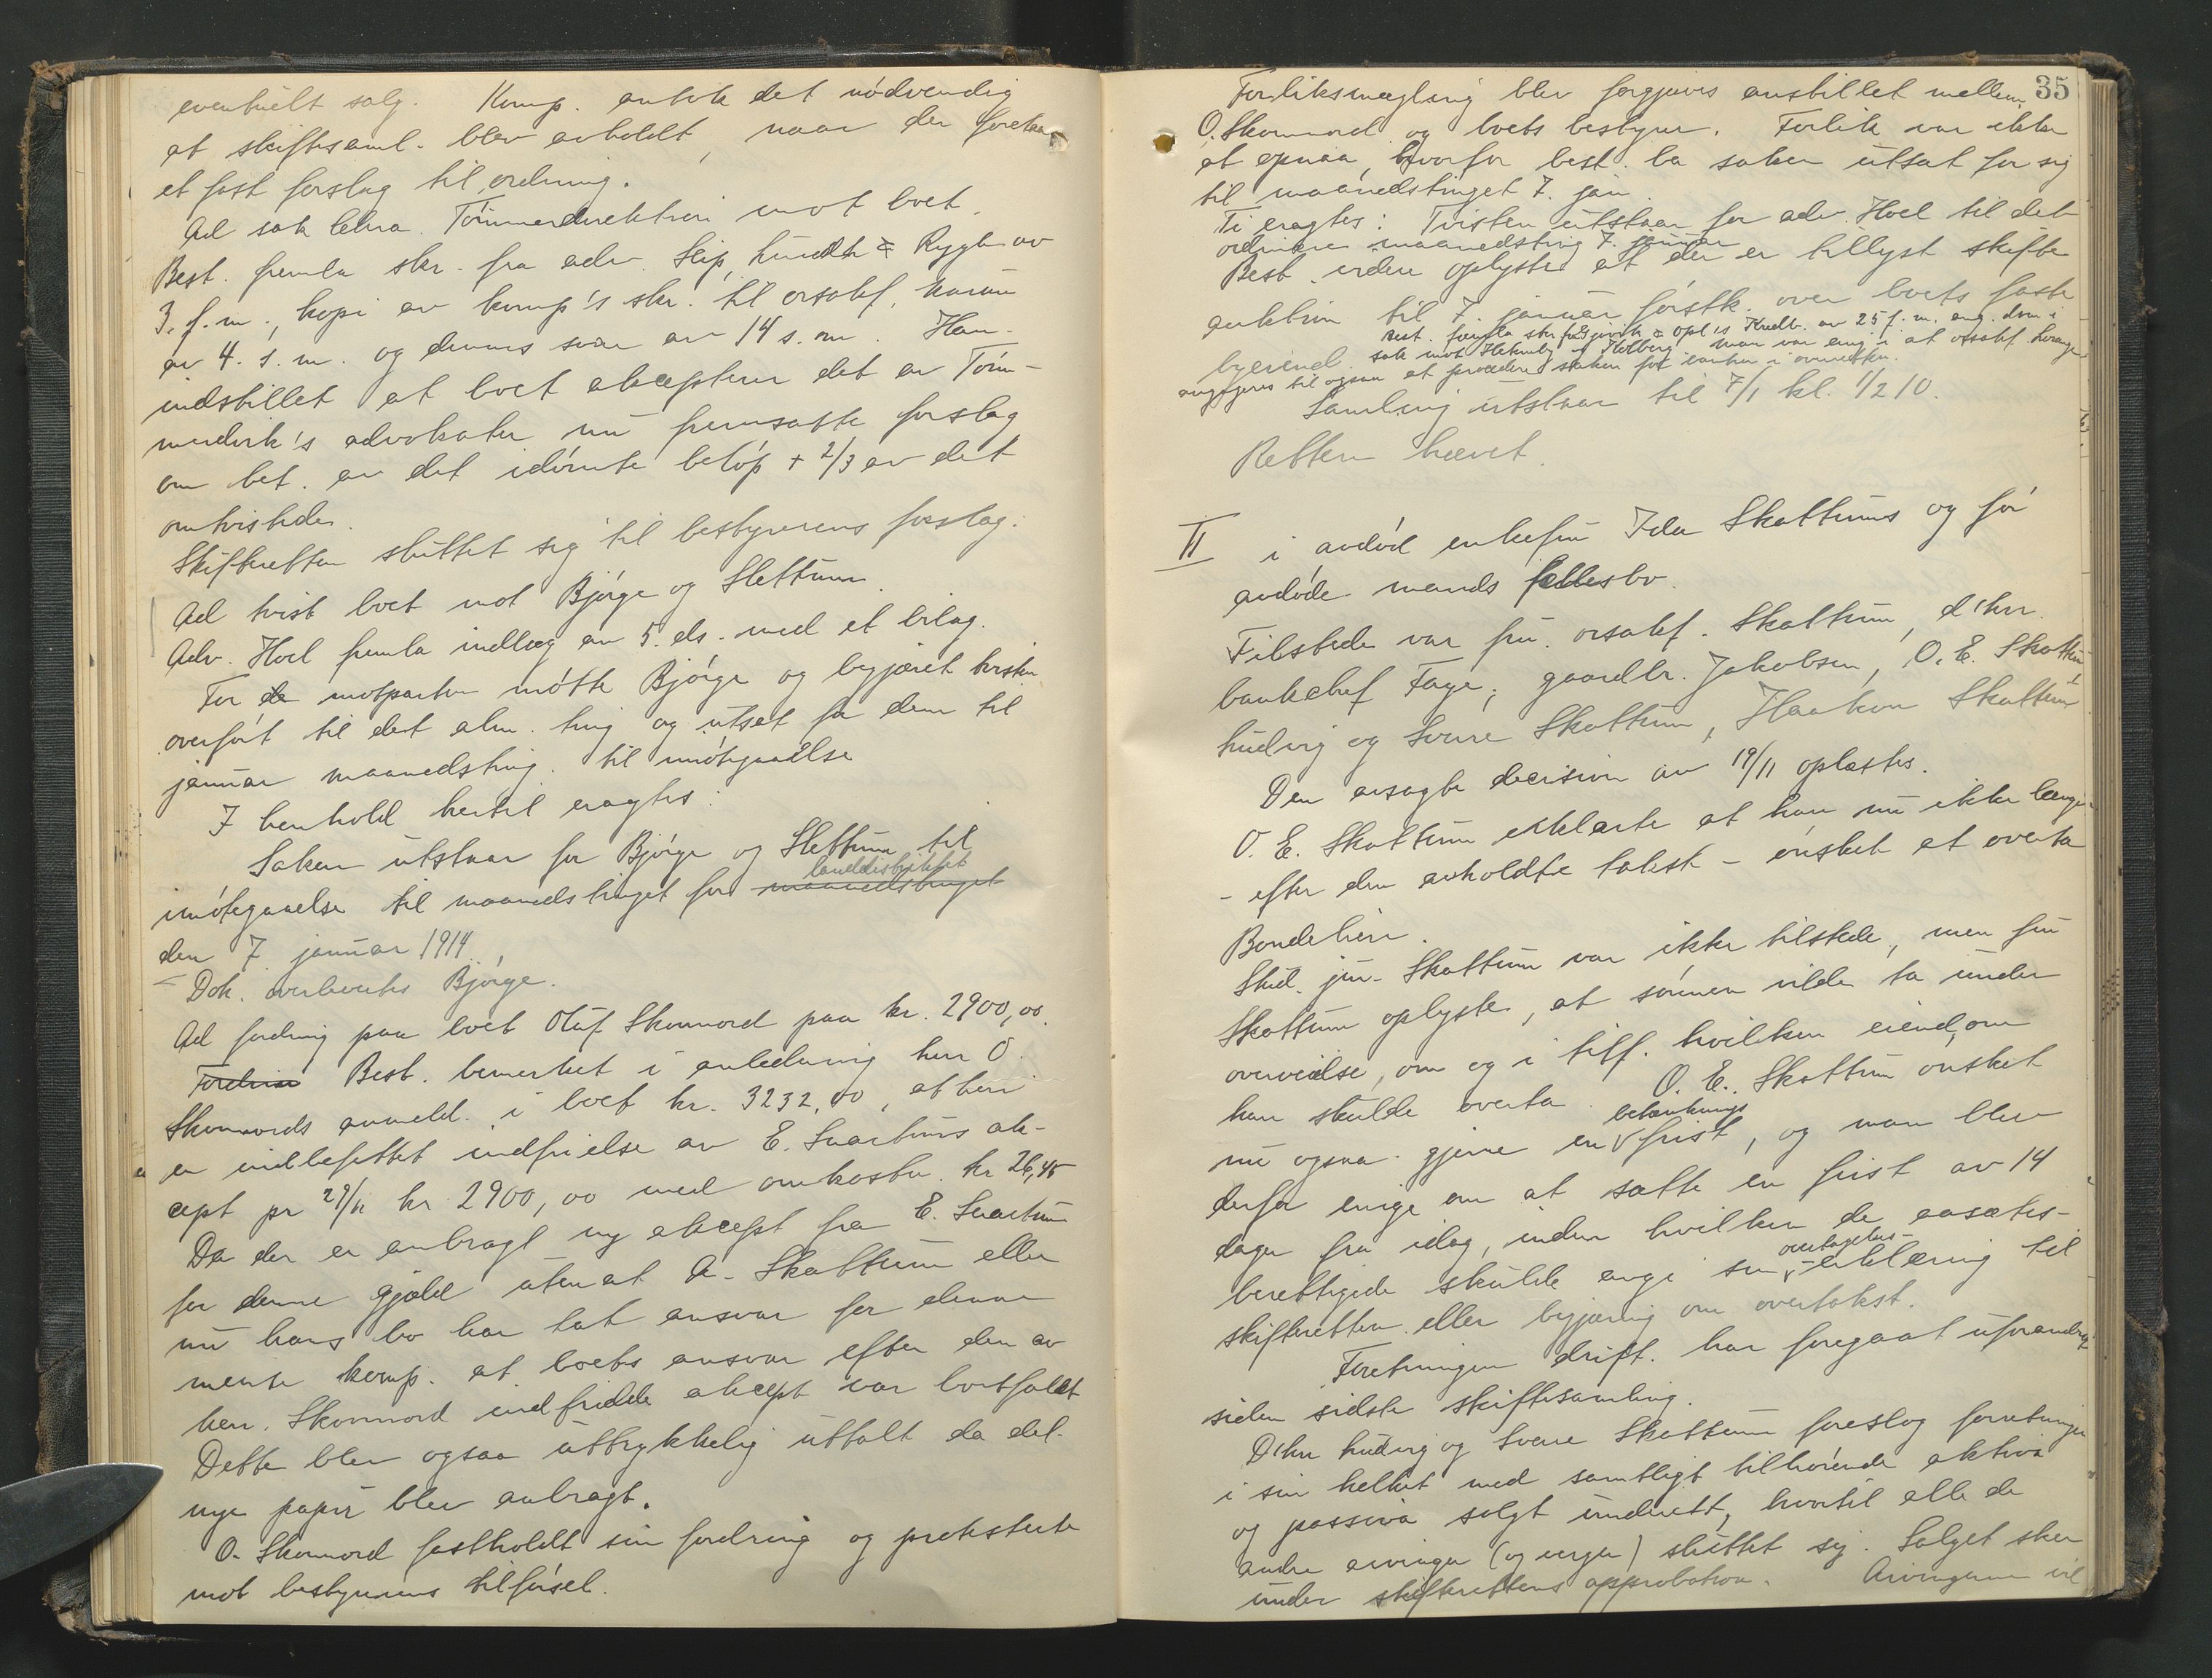 eventuelt salg. Komp. antok det nödvendig
at skiftesaml. blev avholdt, naar der foretaa
et fast forslag til ordning.
Ad sak Tömmerdirektion mot boet.
Best. fremla skr. fra adv. Slip, Lundh & Rygh av
3. f. m., kopi av komp's skr. til orsakf.
av 4. s. m. og dennes svar av 14 s. m. Han
indstillet at boet aksepterer det av Töm-
merdirk's advokater nu fremsatte forslag
om bet. av det idömte belöp + 2/3 av det
omtvistede.
Skifteretten sluttet sig til bestyrerens forslag.
Ad tvist boet mot Bjórge og Slettum
Adv. Hoel fremla indlæg av 5. ds. med et bilag.
For motparten mótte Bjórge og begjæret tvisten
overfórt til det alm. ting og utsat for dem til
januar maanedsting til imótegaaelse
I henhold hertil eragtes:
Saken utstaar for Bjórge og Slettum til
landdistriktet
imótegaaelse til maanedstinget for maanedstinget
den 7. januar 1914
Dok. overleveres Bjórge.
Ad fordring paa boet Oluf Skonnord paa kr. 2900,00.
Best. bemerket i anledning herr O.
Skonnords anmeld. i boet kr. 3232,00, at heri
er indbefattet indfrielse av E. Svartuns ak-
cept pr 29/11 kr 2900,00 med omkostn. kr 26,45
Da der er anbragt ny aksept fra E. Svartun
for denne gjæld uten at A. Skattum eller
nu hans bo har tat ansvar for denne
mente komp. at boets ansvar efter den av
herr. Skonnord indfridde aksept var bortfaldt
Dette blev ogsaa uttrykkelig uttalt da det
nye papir blev anbragt.
O. Skonnord fastholdt sin fordring og protesterte
mot bestyrerens tilfórsel.
35
Forliksmægling blev forgjæves anstillet mellem
O. Skonnord og boets bestyrer. Forlik var ikke
at opnaa, hvorfor best. ba saken utsat for sig
til maanedstinget 7. jan.
Ti eragtes: Tvisten utstaar for adv. Hoel til det
ordinære maanedsting 7. januar
Best. videre oplyste at der er tillyst skifte
auktion til 7. januar förstk. over boets faste
Best. fremla skr fra Gjövik & opl's Kredb. av 25 f. m. ang. dom i
byeiend. sak mot Holmby & Holberg man var enig i at orsakf.
engageres til ogsaa at procedere saken for banken i overretten.
Samling utstaar til 7/1 kl. 1/2 10.
Retten hævet.
II i avdöd enkefru Ida Skattums og för
avdöde mands fællesbo.
Tilstede var fru orsakf. Skattum, d'hrr.
bankchef Faye, gaardbr. Jakobsen, O. E. Skattum,
Ludvig og Sverre Skattum, Haakon Skattum
Den avsagte decision av 19/11 oplæstes.
O. E. Skattum erklærte at han nu ikke længer
- efter den avholdte takst - önsket at overta
Bondelien.
Stud. jur. Skattum var ikke tilstede, men fru
Skattum oplyste, at sönnen vilde ta under
overveielse, om og i tilf. hvilken eiendom
han skulde overta. O. E. Skattum önsket
betænknings
nu ogsaa gjerne en frist, og man blev
derfor enige om at sætte en frist av 14
dager fra idag, inden hvilken de aasætes-
overtagelses-
berettigede skulde avgi sin erklæring til
skifteretten eller begjæring om overtakst.
Forretningen drift. har foregaat uforandret
siden sidste skiftesamling.
D'hrr Ludvig og Sverre Skattum foreslog forretningen
i sin helhet med samtligt tilhórende aktiva
og passiva solgt underett, hvortil alle de
andre arvinger (og verger) sluttet sig. Salget sker
under skifterettens approbation. Arvingerne vil